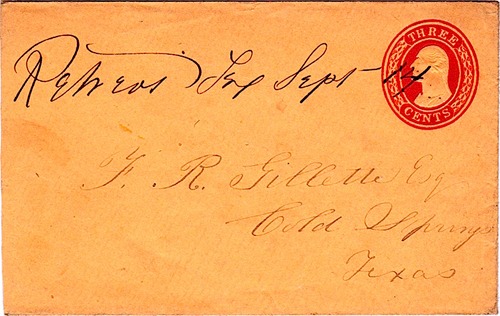 Retreat Tex Sept 14
THREE
CENTS
F. R. Gillette Esq
Cold Springs
Texas